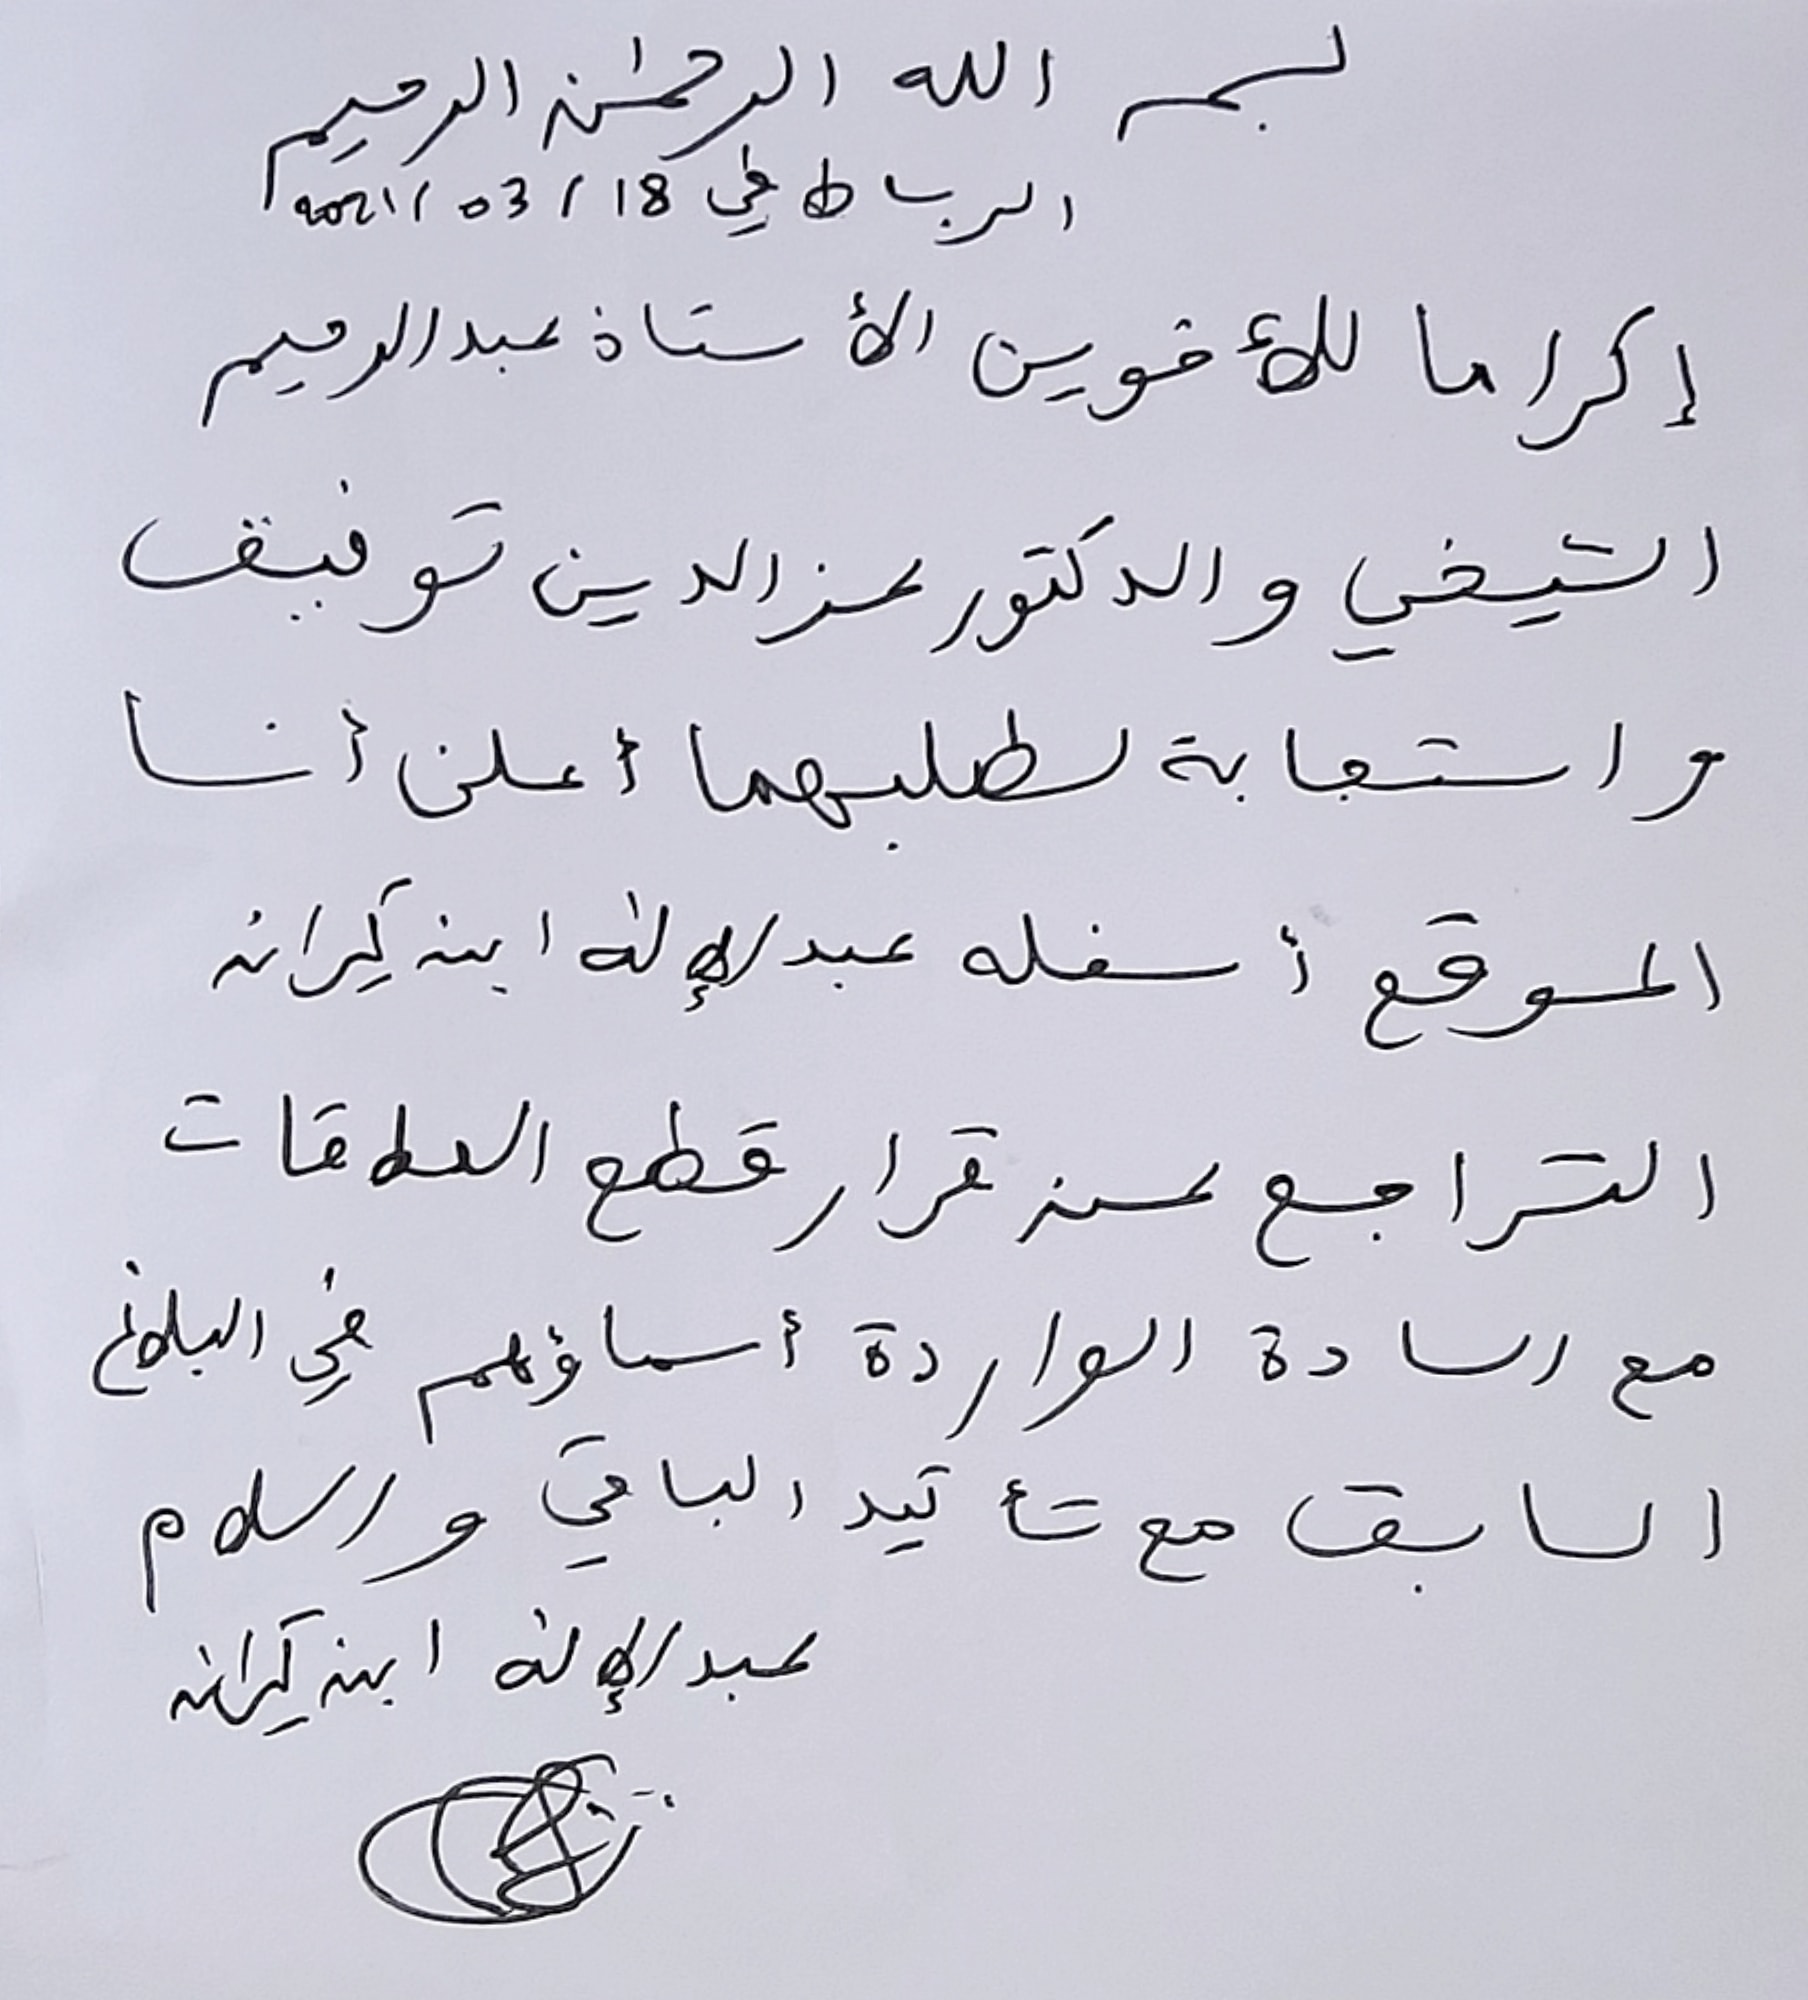 بسم الله الرحمٰن الرحيم
الرباط في 18 / 03 / 2021
إكراما للأخوين الأستاذ عبد الرحيم
الشيخي والدكتور عز الدين توفيق
واستجابة لطلبهما أعلن أنا
الموقع أسفله عبد الإلٰه ابن كيران
التراجع عن قرار قطع العلاقات
مع السادة الواردة أسماؤهم في البلاغ
السابق مع تأكيد الباقي والسلام
عبد الإلٰه ابن كيران